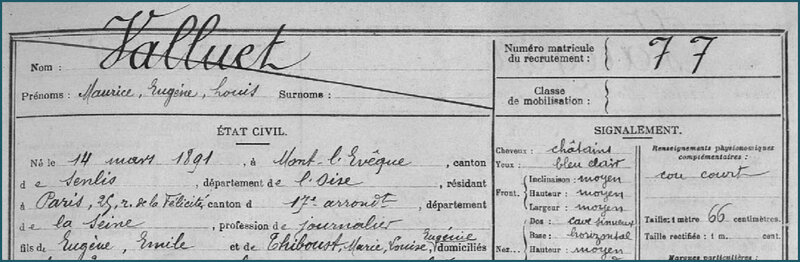 Nom : Valluet
Prénoms : Maurice, Eugène, Louis Surnoms :
Numéro matricule du recrutement : 77
Classe de mobilisation :
ÉTAT CIVIL.
Né le 14 mars 1891, à Mont-l'Evêque, canton
de Senlis, département de l'Oise, résidant
à Paris, 25, r. de la Félicité, canton d 17e arrondt, département
de la Seine, profession de journalier
fils de Eugène, Emile et de Thiboust, Marie, Louise, Eugénie domiciliés
SIGNALEMENT.
Cheveux : châtains
Yeux : bleu clair
Front. Inclinaison : moyen
Hauteur : moyen
Largeur : moyen
Nez. Dos : cave sinueux
Base : horizontal
Hauteur : moyen
Renseignements physionomiques
complémentaires :
cou court
Taille : 1 mètre 66 centimètres.
Taille rectifiée : 1 m. cent.
Marques particulières :